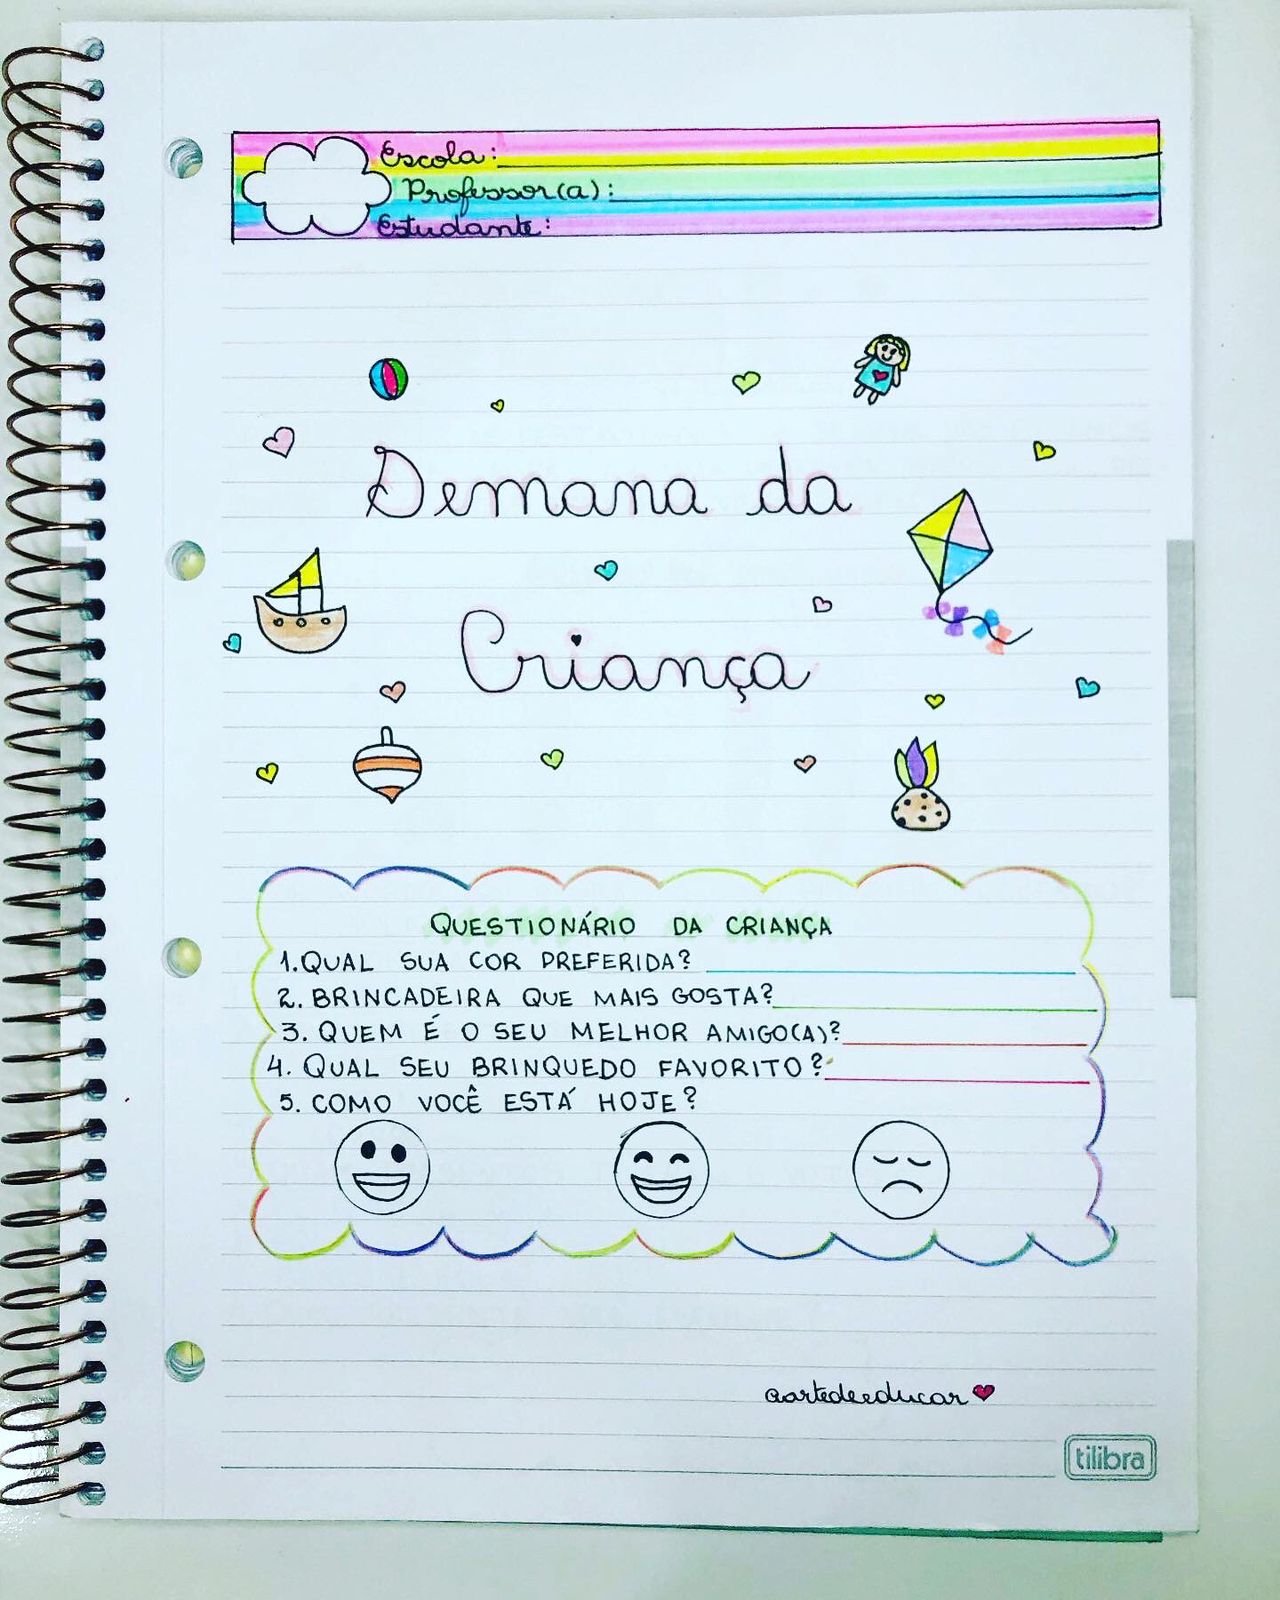 Escola:
Professor(a):
Estudante:
Semana da
Criança
QUESTIONÁRIO DA CRIANÇA
1. QUAL SUA COR PREFERIDA?
2. BRINCADEIRA QUE MAIS GOSTA?
3. QUEM É O SEU MELHOR AMIGO(A)?
4. QUAL SEU BRINQUEDO FAVORITO?
5. COMO VOCÊ ESTÁ HOJE?
@artedeeducar
tilibra